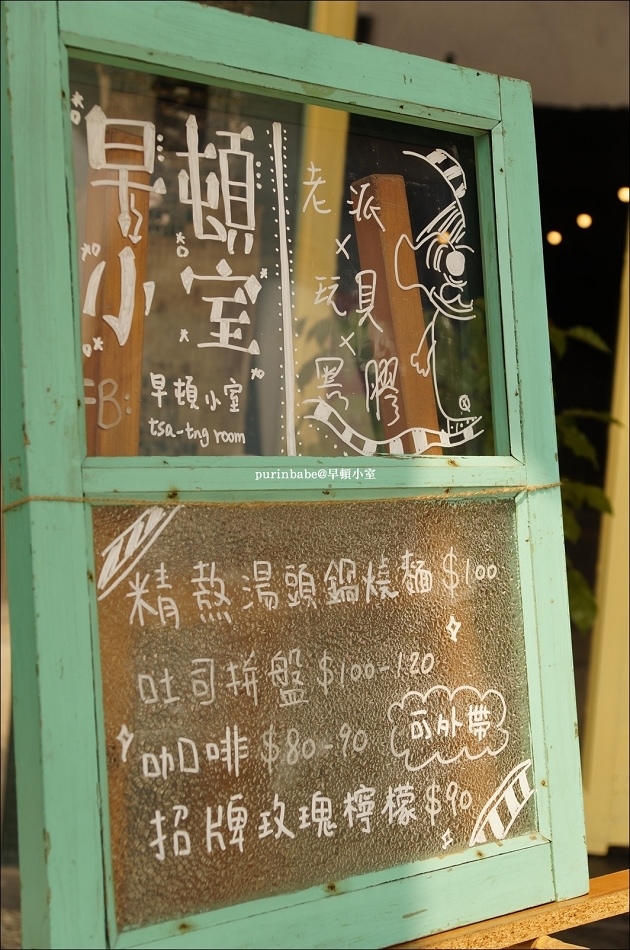 早頓
小室
FB:
早頓小室
tsa-tng room
老派
×
玩具
×
黑膠
purinbabe@早頓小室
精熬湯頭鍋燒麵 $100
吐司拼盤 $100-120
咖啡 $80-90
可外帶
招牌玫瑰檸檬 $90